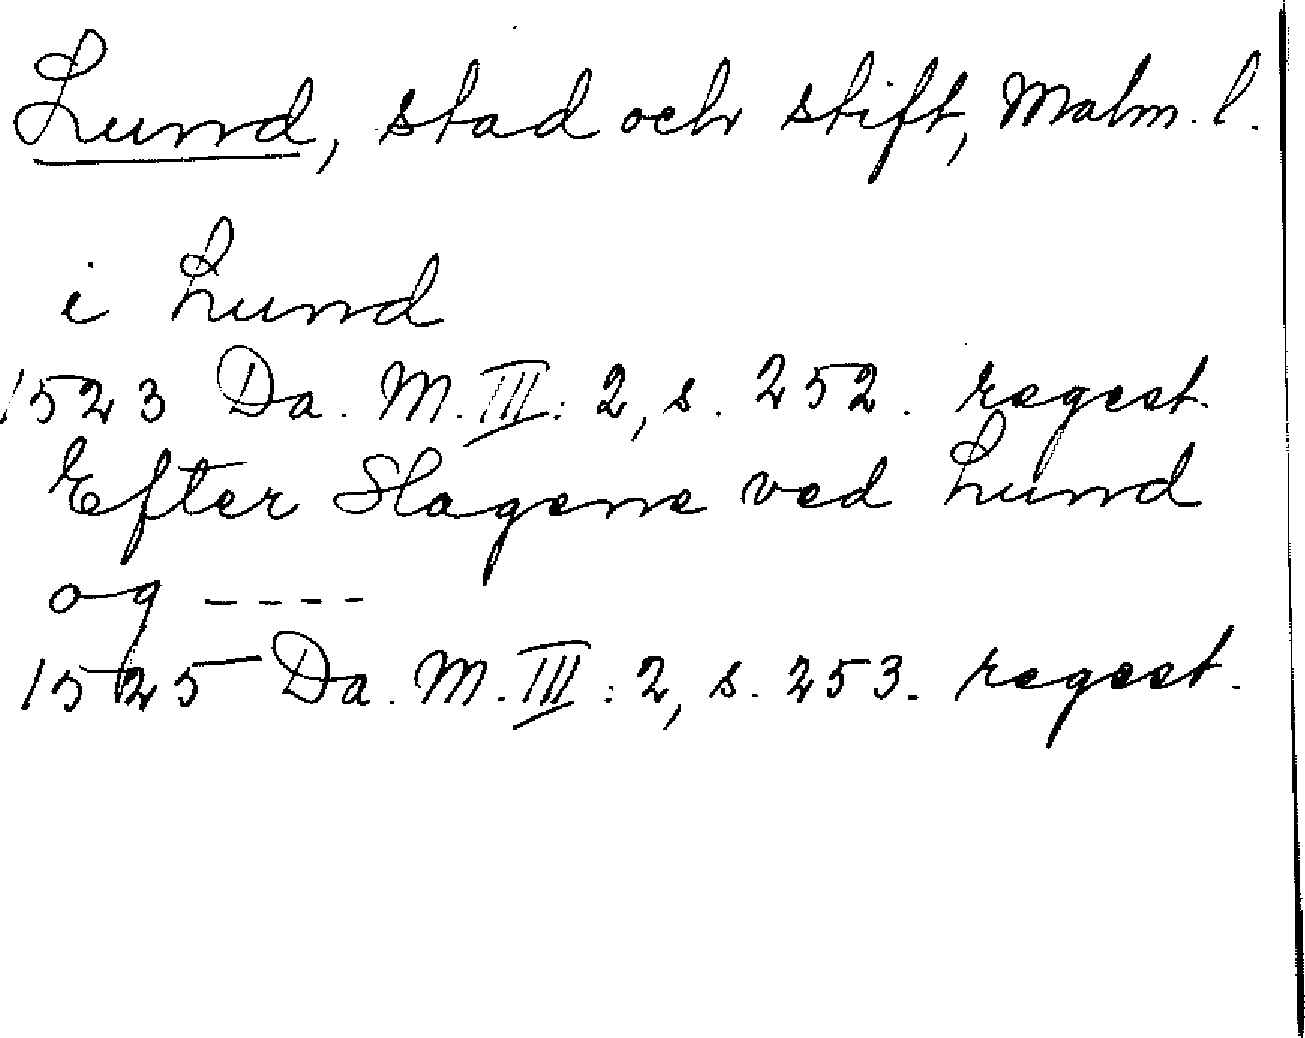 Lund, stad och stift, Malm. l.
i Lund
1523 Da. M. III: 2, s. 252. regest.
Efter Slagene ved Lund
og ----
1525 Da. M. III: 2, s. 253. regest.